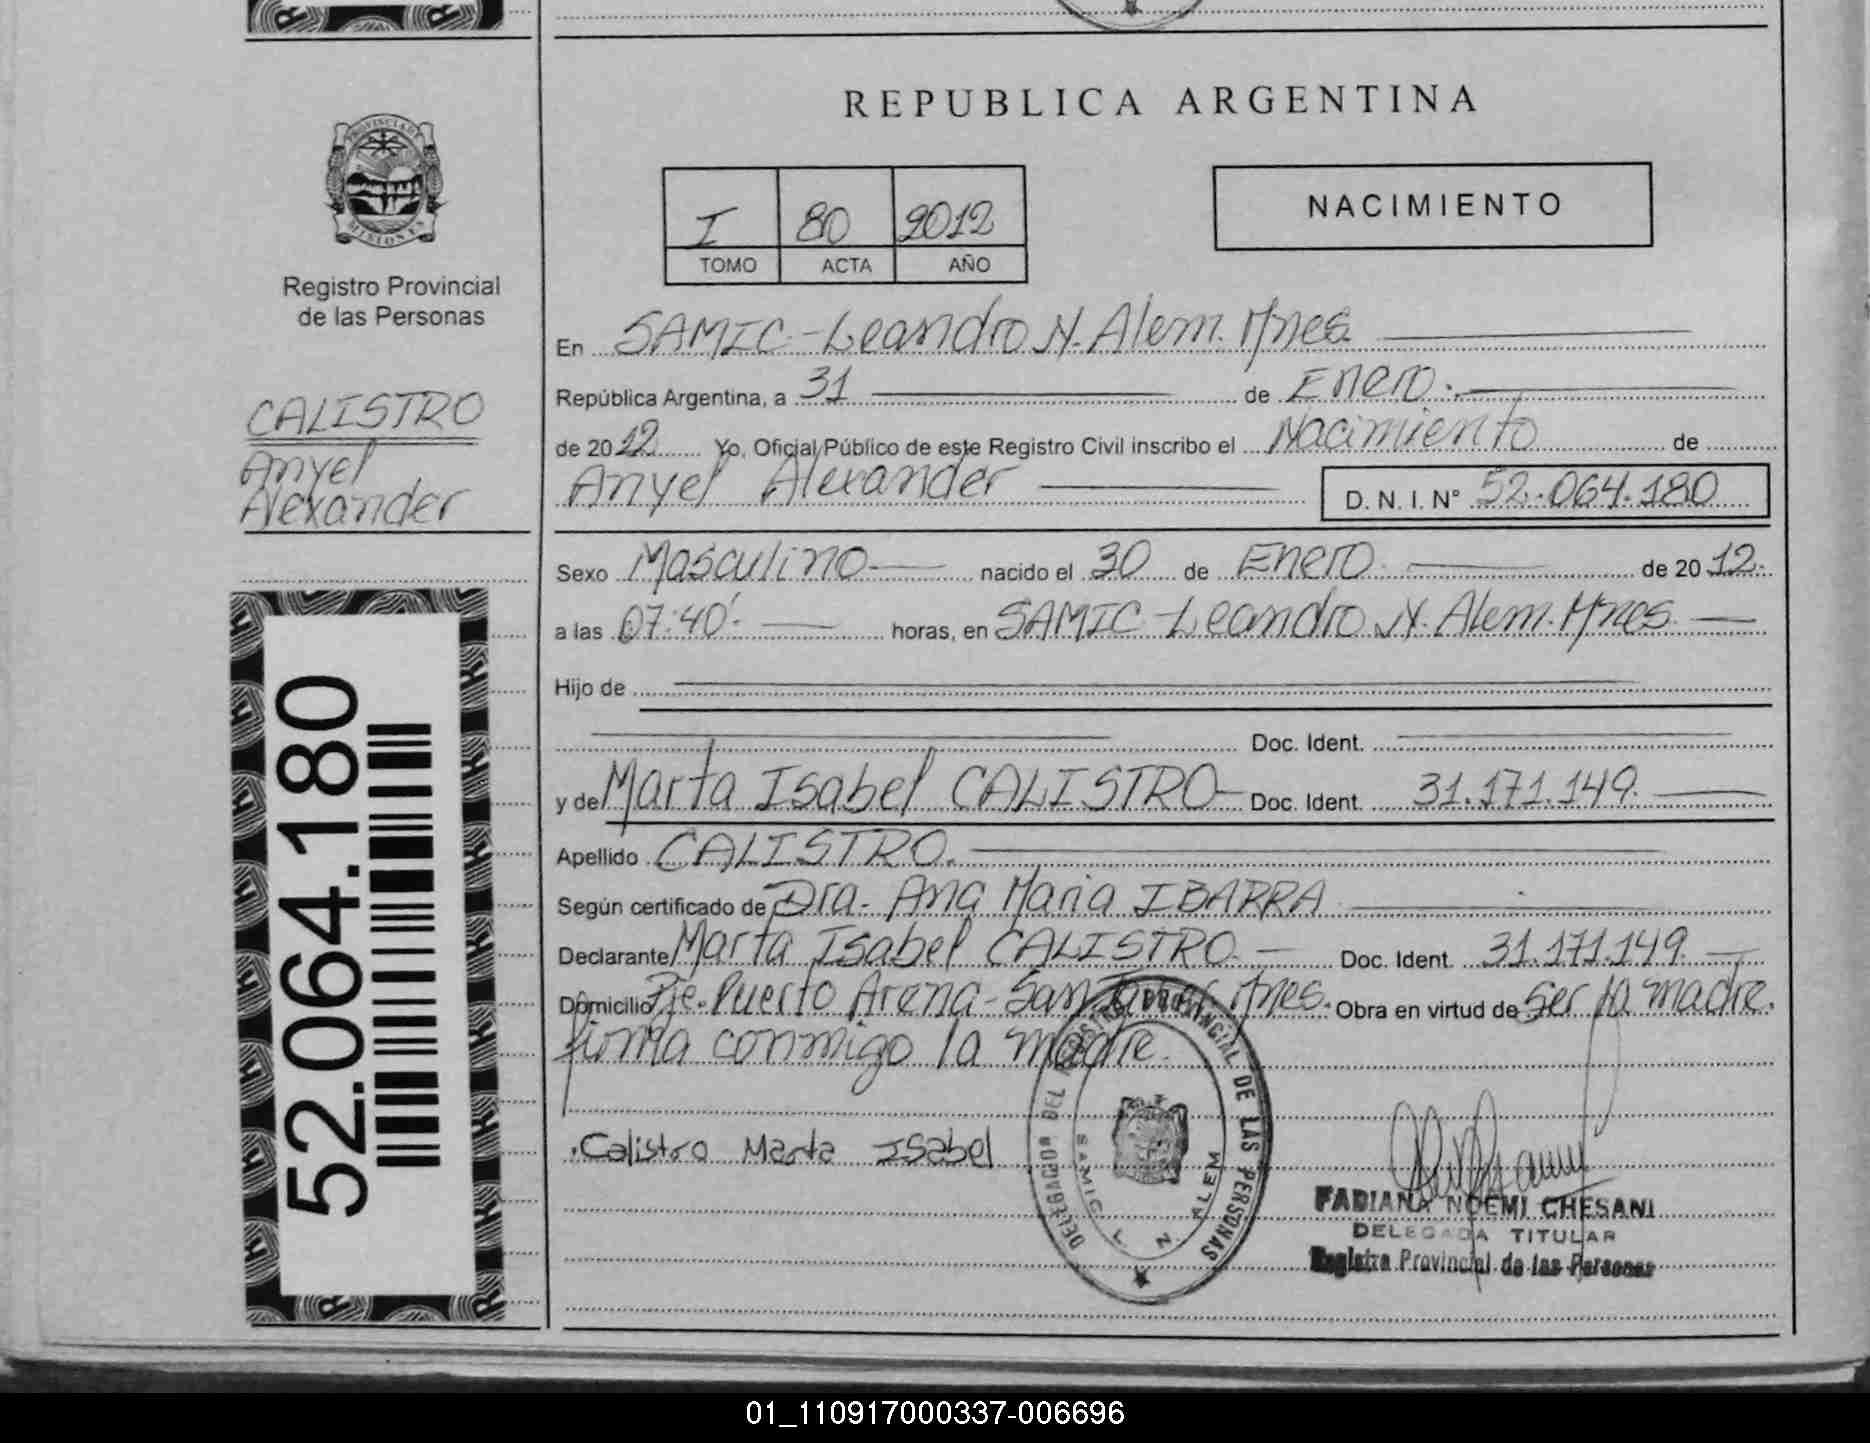 REPUBLICA ARGENTINA
PROVINCIA DE
MISIONES
Registro Provincial
de las Personas
I 80 2012
TOMO ACTA AÑO
NACIMIENTO
CALISTRO
Anyel
Alexander
En SAMIC-Leandro N. Alem. Mnes.
República Argentina, a 31 de Enero.
de 2012 Yo, Oficial Público de este Registro Civil inscribo el Nacimiento de
Anyel Alexander D.N.I.N° 52.064.180
Sexo Masculino nacido el 30 de Enero de 2012.
a las 07:40'. horas, en SAMIC-Leandro N. Alem. Mnes.
Hijo de
Doc. Ident.
y de Marta Isabel CALISTRO Doc. Ident. 31.171.149.
Apellido CALISTRO.
Según certificado de Dra. Ana Maria IBARRA
Declarante Marta Isabel CALISTRO. Doc. Ident. 31.171.149.
Domicilio Pje. Puerto Arena- Mnes. Obra en virtud de Ser la madre.
firma conmigo la madre.
Calistro Marta Isabel
DELEGACION DEL REGISTRO PROVINCIAL DE LAS PERSONAS
SAMIC L. N. ALEM
FABIANA NOEMI CHESANI
DELEGADA TITULAR
Registro Provincial de las Personas
52.064.180
01_110917000337-006696